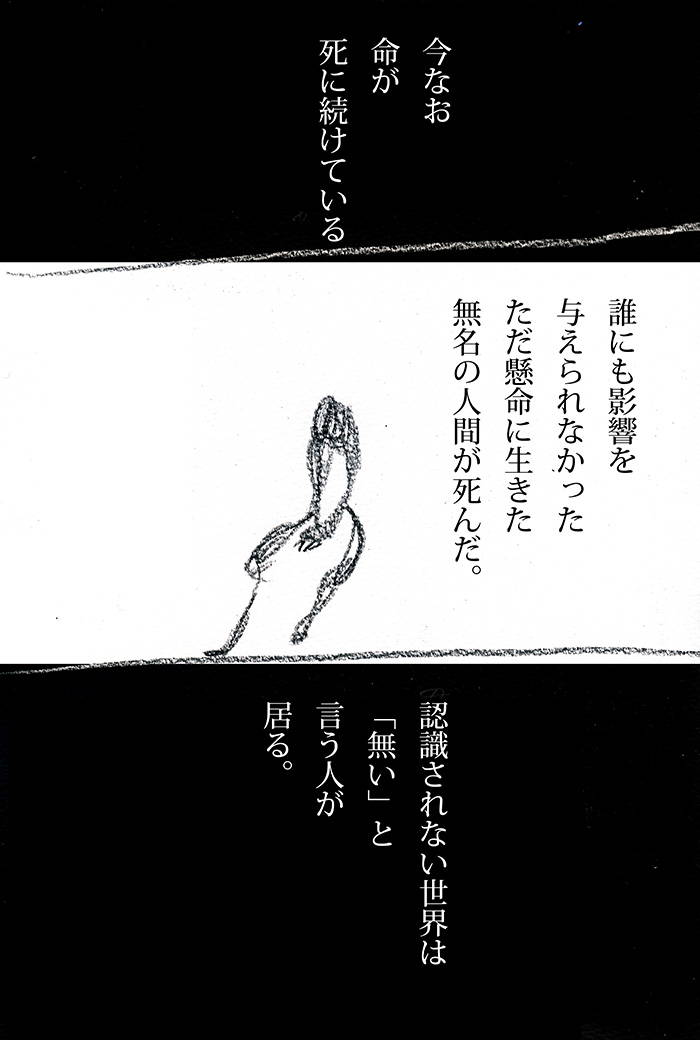 今なお
命が
死に続けている
誰にも影響を
与えられなかった
ただ懸命に生きた
無名の人間が死んだ。
認識されない世界は
「無い」と
言う人が
居る。